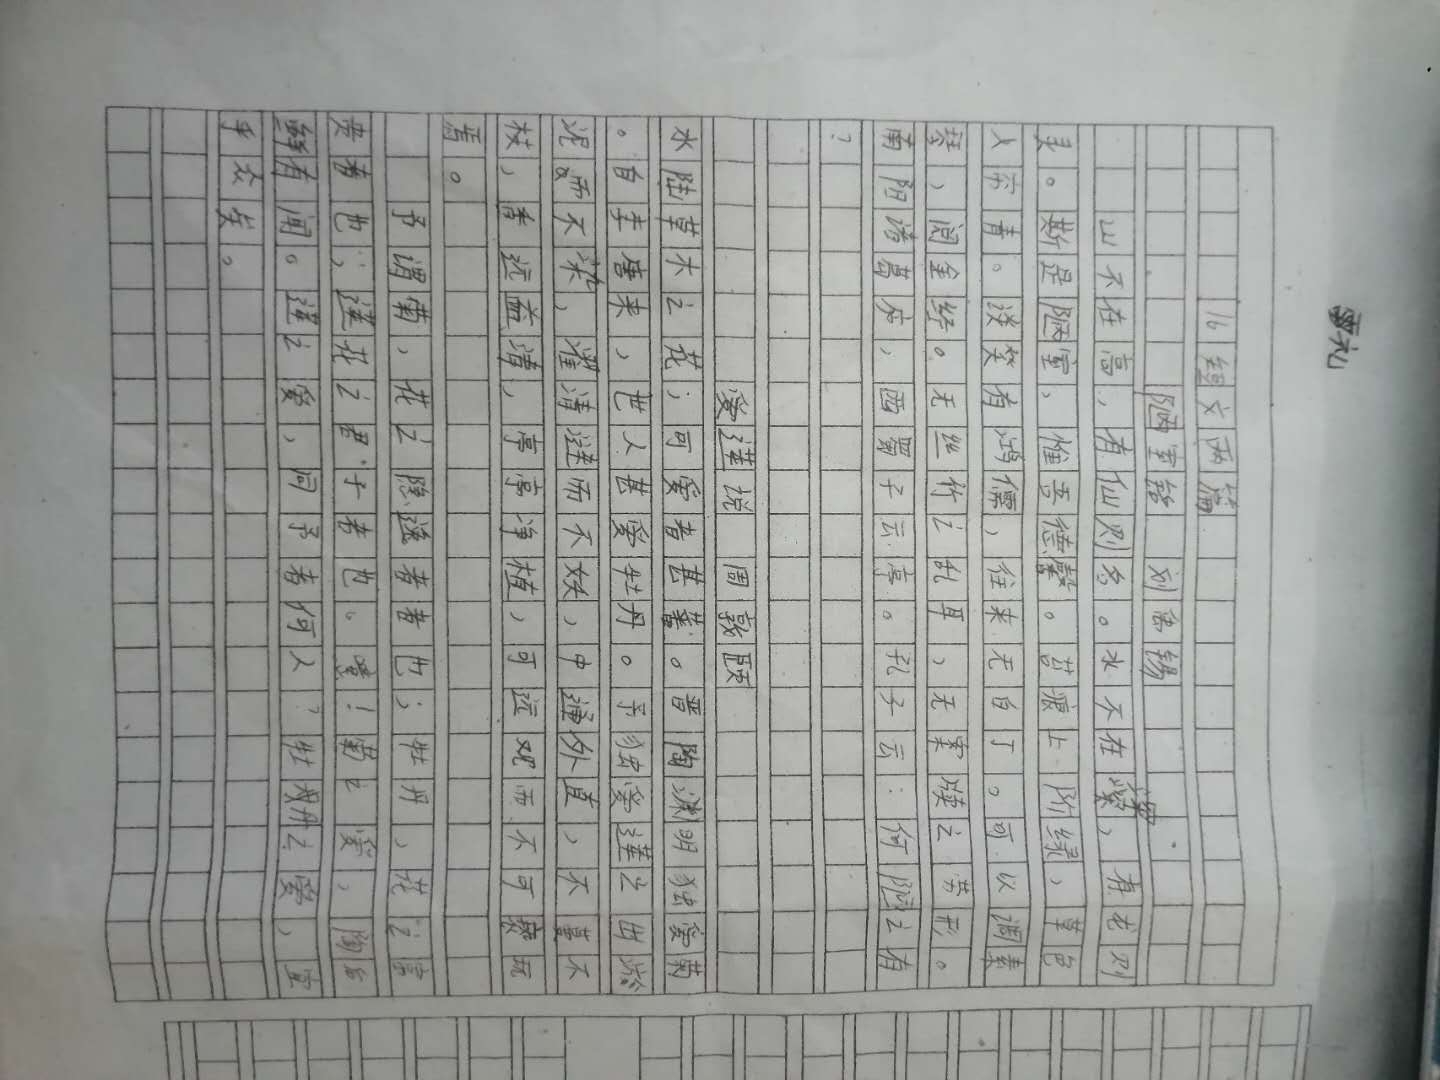 16 短文两篇
陋室铭 刘禹锡
山不在高,有仙则名。水不在深,有龙则
灵。斯是陋室,惟吾德馨。苔痕上阶绿,草色
入帘青。谈笑有鸿儒,往来无白丁。可以调素
琴,阅金经。无丝竹之乱耳,无案牍之劳形。
南阳诸葛庐,西蜀子云亭。孔子云:何陋之有
?
爱莲说 周敦颐
水陆草木之花;可爱者甚蕃。晋陶渊明独爱菊
。自李唐来,世人甚爱牡丹。予独爱莲之出淤
泥而不染,濯清涟而不妖,中通外直,不蔓不
枝,香远益清,亭亭净植,可远观而不可亵玩
焉。
予谓菊,花之隐逸者者也;牡丹,花之富
贵者也;莲花之君子者也。噫!菊之爱,陶后
鲜有闻。莲之爱,同予者何人?牡丹之爱,宜
乎众矣。